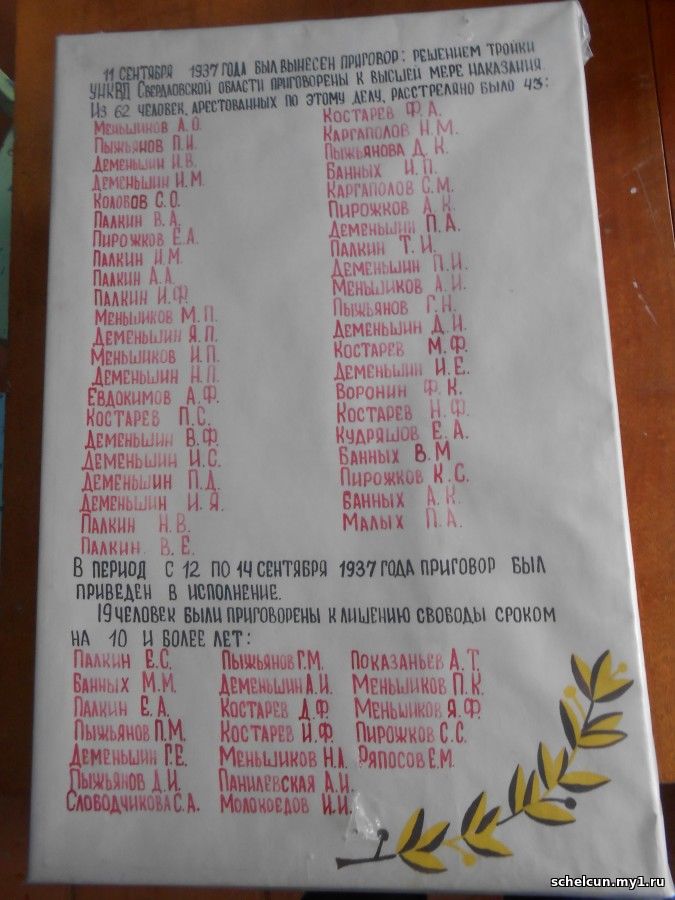 11 СЕНТЯБРЯ 1937 ГОДА БЫЛ ВЫНЕСЕН ПРИГОВОР: РЕШЕНИЕМ ТРОЙКИ
УНКВД СВЕРДЛОВСКОЙ ОБЛАСТИ ПРИГОВОРЕНЫ К ВЫСШЕЙ МЕРЕ НАКАЗАНИЯ.
ИЗ 62 ЧЕЛОВЕК, АРЕСТОВАННЫХ ПО ЭТОМУ ДЕЛУ, РАССТРЕЛЯНО БЫЛО 43:
МЕНЬШИКОВ А.О.
ПЫЖЬЯНОВ П.И.
ДЕМЕНЬШИН И.В.
ДЕМЕНЬШИН И.М.
КОЛОБОВ С.О.
ПАЛКИН В.А.
ПИРОЖКОВ Е.А.
ПАЛКИН И.М.
ПАЛКИН А.А.
ПАЛКИН И.Ф.
МЕНЬШИКОВ М.П.
ДЕМЕНЬШИН Я.П.
МЕНЬШИКОВ И.П.
ДЕМЕНЬШИН Н.П.
ЕВДОКИМОВ А.Ф.
КОСТАРЕВ П.С.
ДЕМЕНЬШИН В.Ф.
ДЕМЕНЬШИН И.С.
ДЕМЕНЬШИН П.Д.
ДЕМЕНЬШИН И.Я.
ПАЛКИН Н.В.
ПАЛКИН В.Е.
КОСТАРЕВ Ф.А.
КАРГАПОЛОВ Н.М.
ПЫЖЬЯНОВА Д.К.
БАННЫХ И.П.
КАРГАПОЛОВ С.М.
ПИРОЖКОВ А.К.
ДЕМЕНЬШИН П.А.
ПАЛКИН Т.И.
ДЕМЕНЬШИН П.И.
МЕНЬШИКОВ А.И.
ПЫЖЬЯНОВ Г.Н.
ДЕМЕНЬШИН Д.И.
КОСТАРЕВ М.Ф.
ДЕМЕНЬШИН И.Е.
ВОРОНИН Ф.К.
КОСТАРЕВ Н.Ф.
КУДРЯШОВ Е.А.
БАННЫХ В.М
ПИРОЖКОВ К.С.
БАННЫХ А.К.
МАЛЫХ П.А.
В ПЕРИОД С 12 ПО 14 СЕНТЯБРЯ 1937 ГОДА ПРИГОВОР БЫЛ
ПРИВЕДЕН В ИСПОЛНЕНИЕ.
19 ЧЕЛОВЕК БЫЛИ ПРИГОВОРЕНЫ К ЛИШЕНИЮ СВОБОДЫ СРОКОМ
НА 10 И БОЛЕЕ ЛЕТ:
ПАЛКИН Е.С.
БАННЫХ М.М.
ПАЛКИН Е.А.
ПЫЖЬЯНОВ П.М.
ДЕМЕНЬШИН Г.Е.
ПЫЖЬЯНОВ Д.И.
СЛОБОДЧИКОВА С.А.
ПЫЖЬЯНОВ Г.М.
ДЕМЕНЬШИН А.И.
КОСТАРЕВ Д.Ф
КОСТАРЕВ И.Ф.
МЕНЬШИКОВ Н.А.
ПАНИЛЕВСКАЯ А.И.
МОЛОКОЕДОВ И.И.
ПОКАЗАНЬЕВ А.Т.
МЕНЬШИКОВ П.К.
МЕНЬШИКОВ Я.Ф.
ПИРОЖКОВ С.С.
РЯПОСОВ Е.М.
schelcun.my1.ru